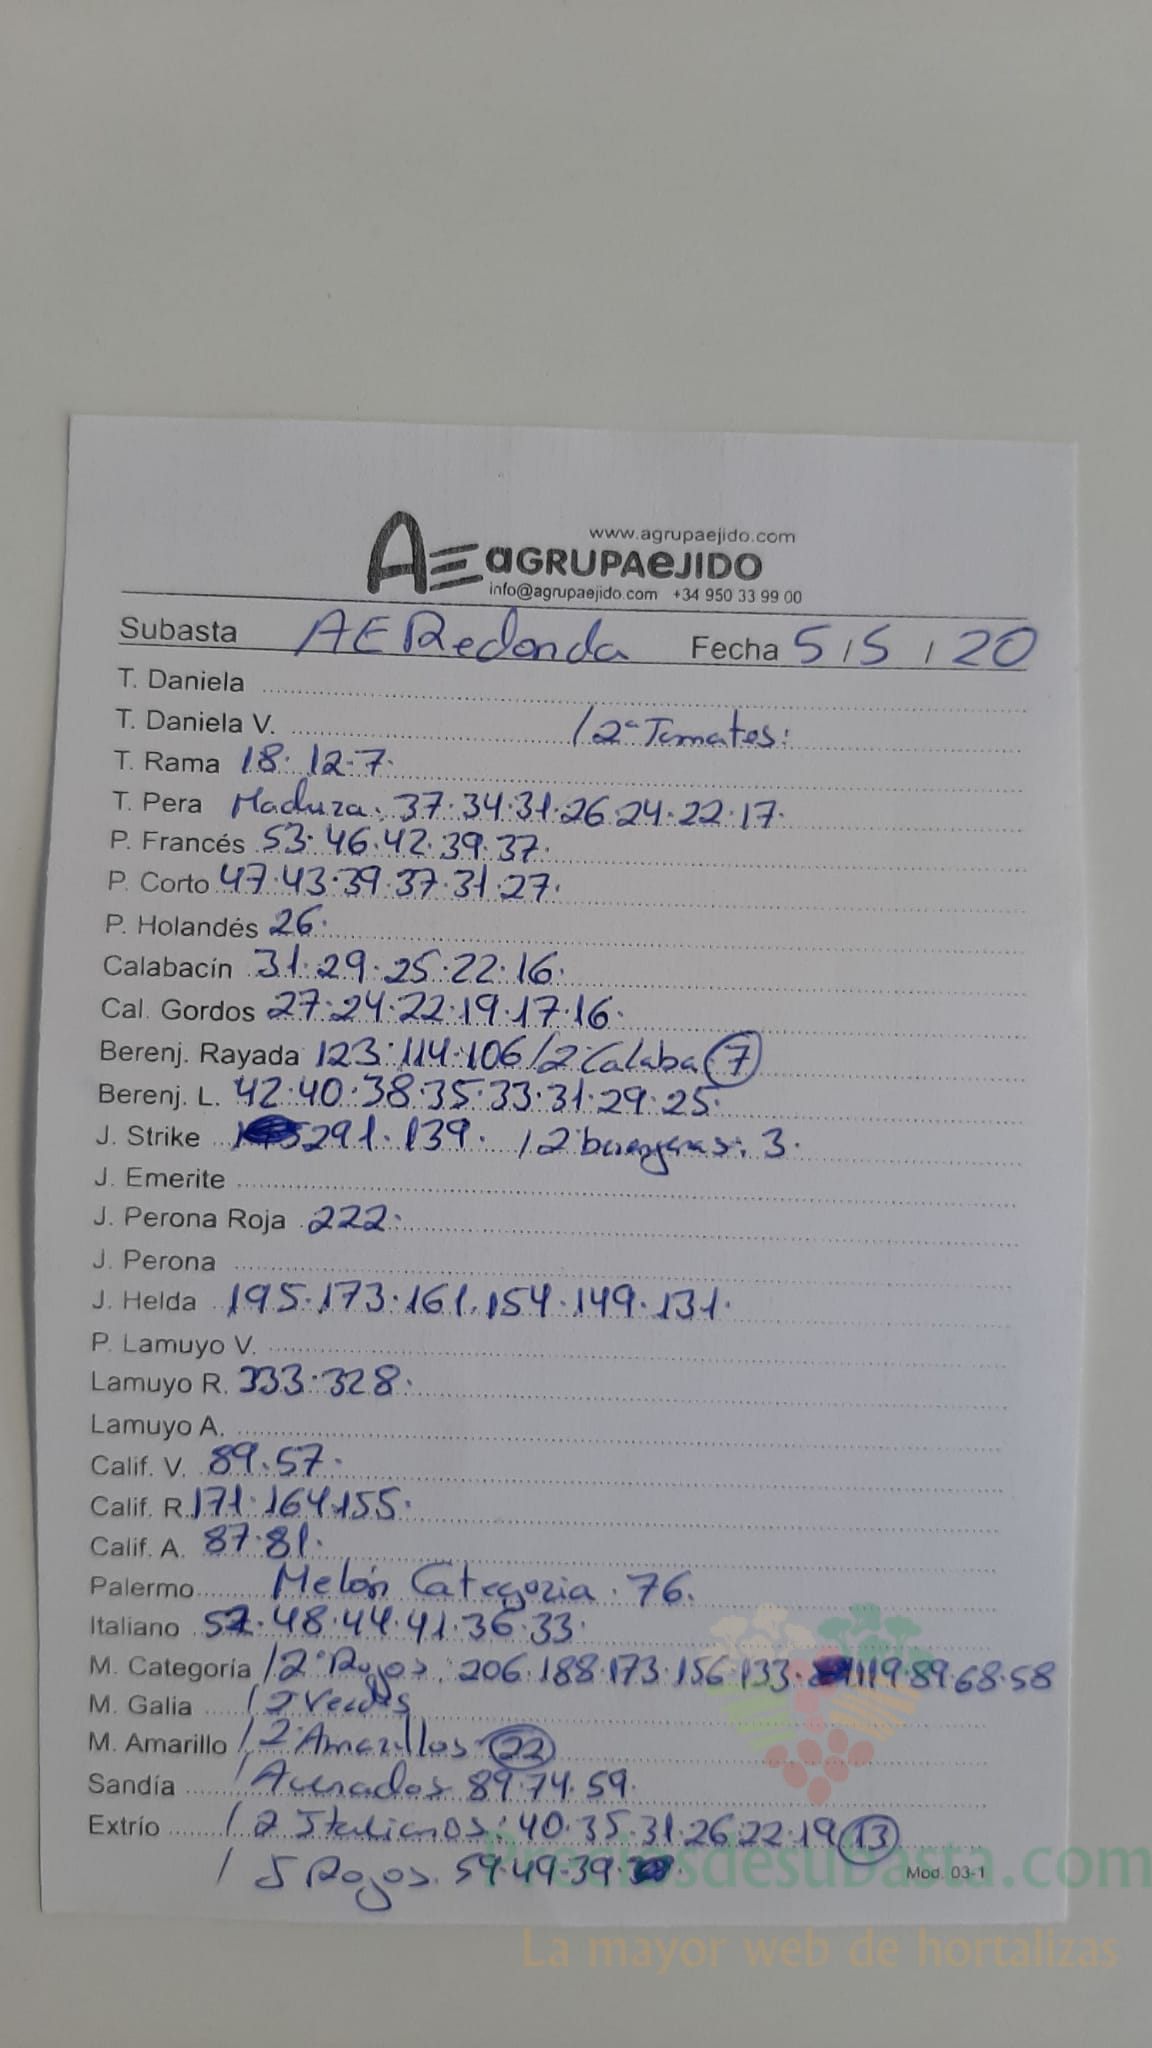 www.agrupaejido.com
AE aGRUPAeJIDO
info@agrupaejido.com +34 950 33 99 00
Subasta AERedonda Fecha 5/5/20
T. Daniela
T. Daniela V. /2ª Tomates:
T. Rama 18.12.7.
T. Pera Maduza: 37.34.31.26.24.22.17.
P. Francés 53.46.42.39.37.
P. Corto 47.43.39.37.31.27.
P. Holandés 26.
Calabacín 31.29.25.22.16.
Cal. Gordos 27.24.22.19.17.16.
Berenj. Rayada 123.114.106/2 Calaba 7
Berenj. L. 42.40.38.35.33.31.29.25.
J. Strike 291.139. /2 berenjenas: 3.
J. Emerite
J. Perona Roja 222.
J. Perona
J. Helda 195.173.161.154.149.131.
P. Lamuyo V.
Lamuyo R. 333.328.
Lamuyo A.
Calif. V. 89.57.
Calif. R. 171.164.155.
Calif. A. 87.81.
Palermo Melón Categoria 76.
Italiano 48.44.41.36.33.
M. Categoría /2ª Rojos 206.188.173.156.133.119.89.68.58
M. Galia /2 Verdes
M. Amarillo /2 Amarillos 22
Sandía / Asurados 89.74.59.
Extrío /2 Italianos: 40.35.31.26.22.19 13
/ 5 Rojos. 59.49.39.
Mod. 03-1
Preciosdesubasta.com
La mayor web de hortalizas